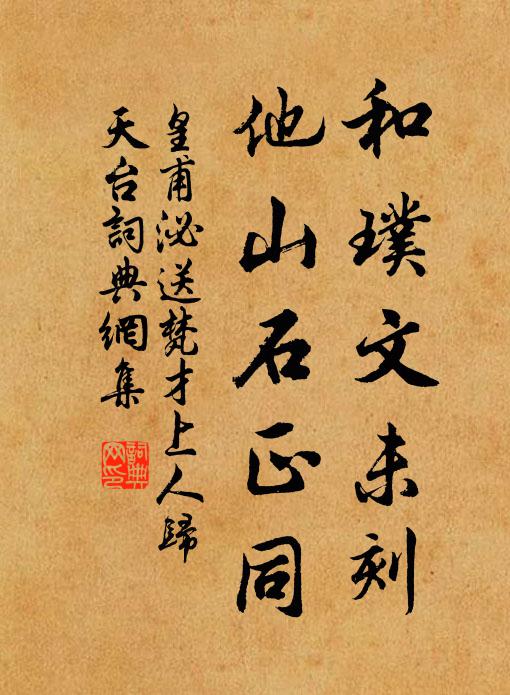 和璞文未刻
他山石正同
皇甫泌送梵才上人歸
天台詞典網集
詞典網印